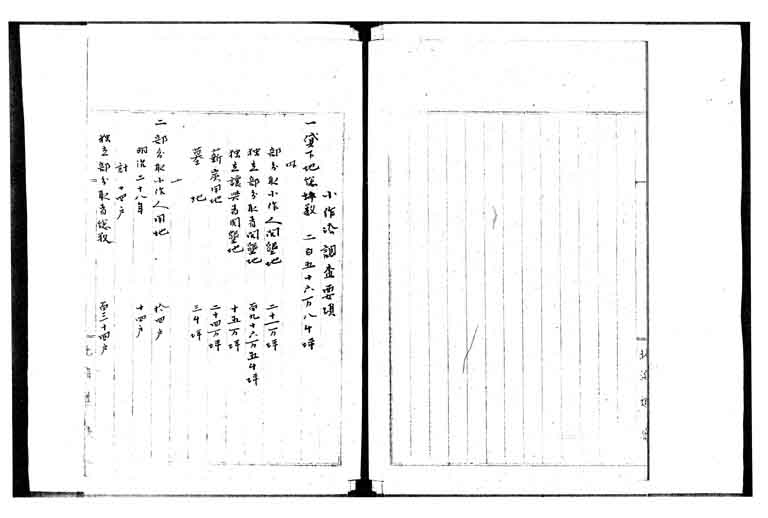 小作法調査要項
一 貸下地総坪数 二百五十六万八千坪
内
部分取小作人開墾地 二十一万坪
独立部分取者開墾地 百九十六万五千坪
独立譲与者開墾地 十五万坪
薪炭用地 二十四万坪
墓地 三千坪
二 部分取小作人用地 拾四戸
明治二十八年 十四戸
計 十四戸
独立部分取者総数 百三十四戸
北海道庁